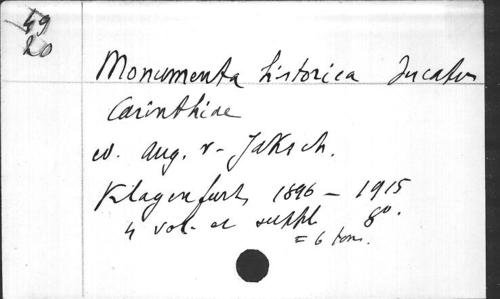 49
20
Monumenta historica Ducatus
Carinthiae
ed. Aug. v. Jaksch.
Klagenfurt, 1896 – 1915
4 vol. et suppl 8°.
= 6 tom.